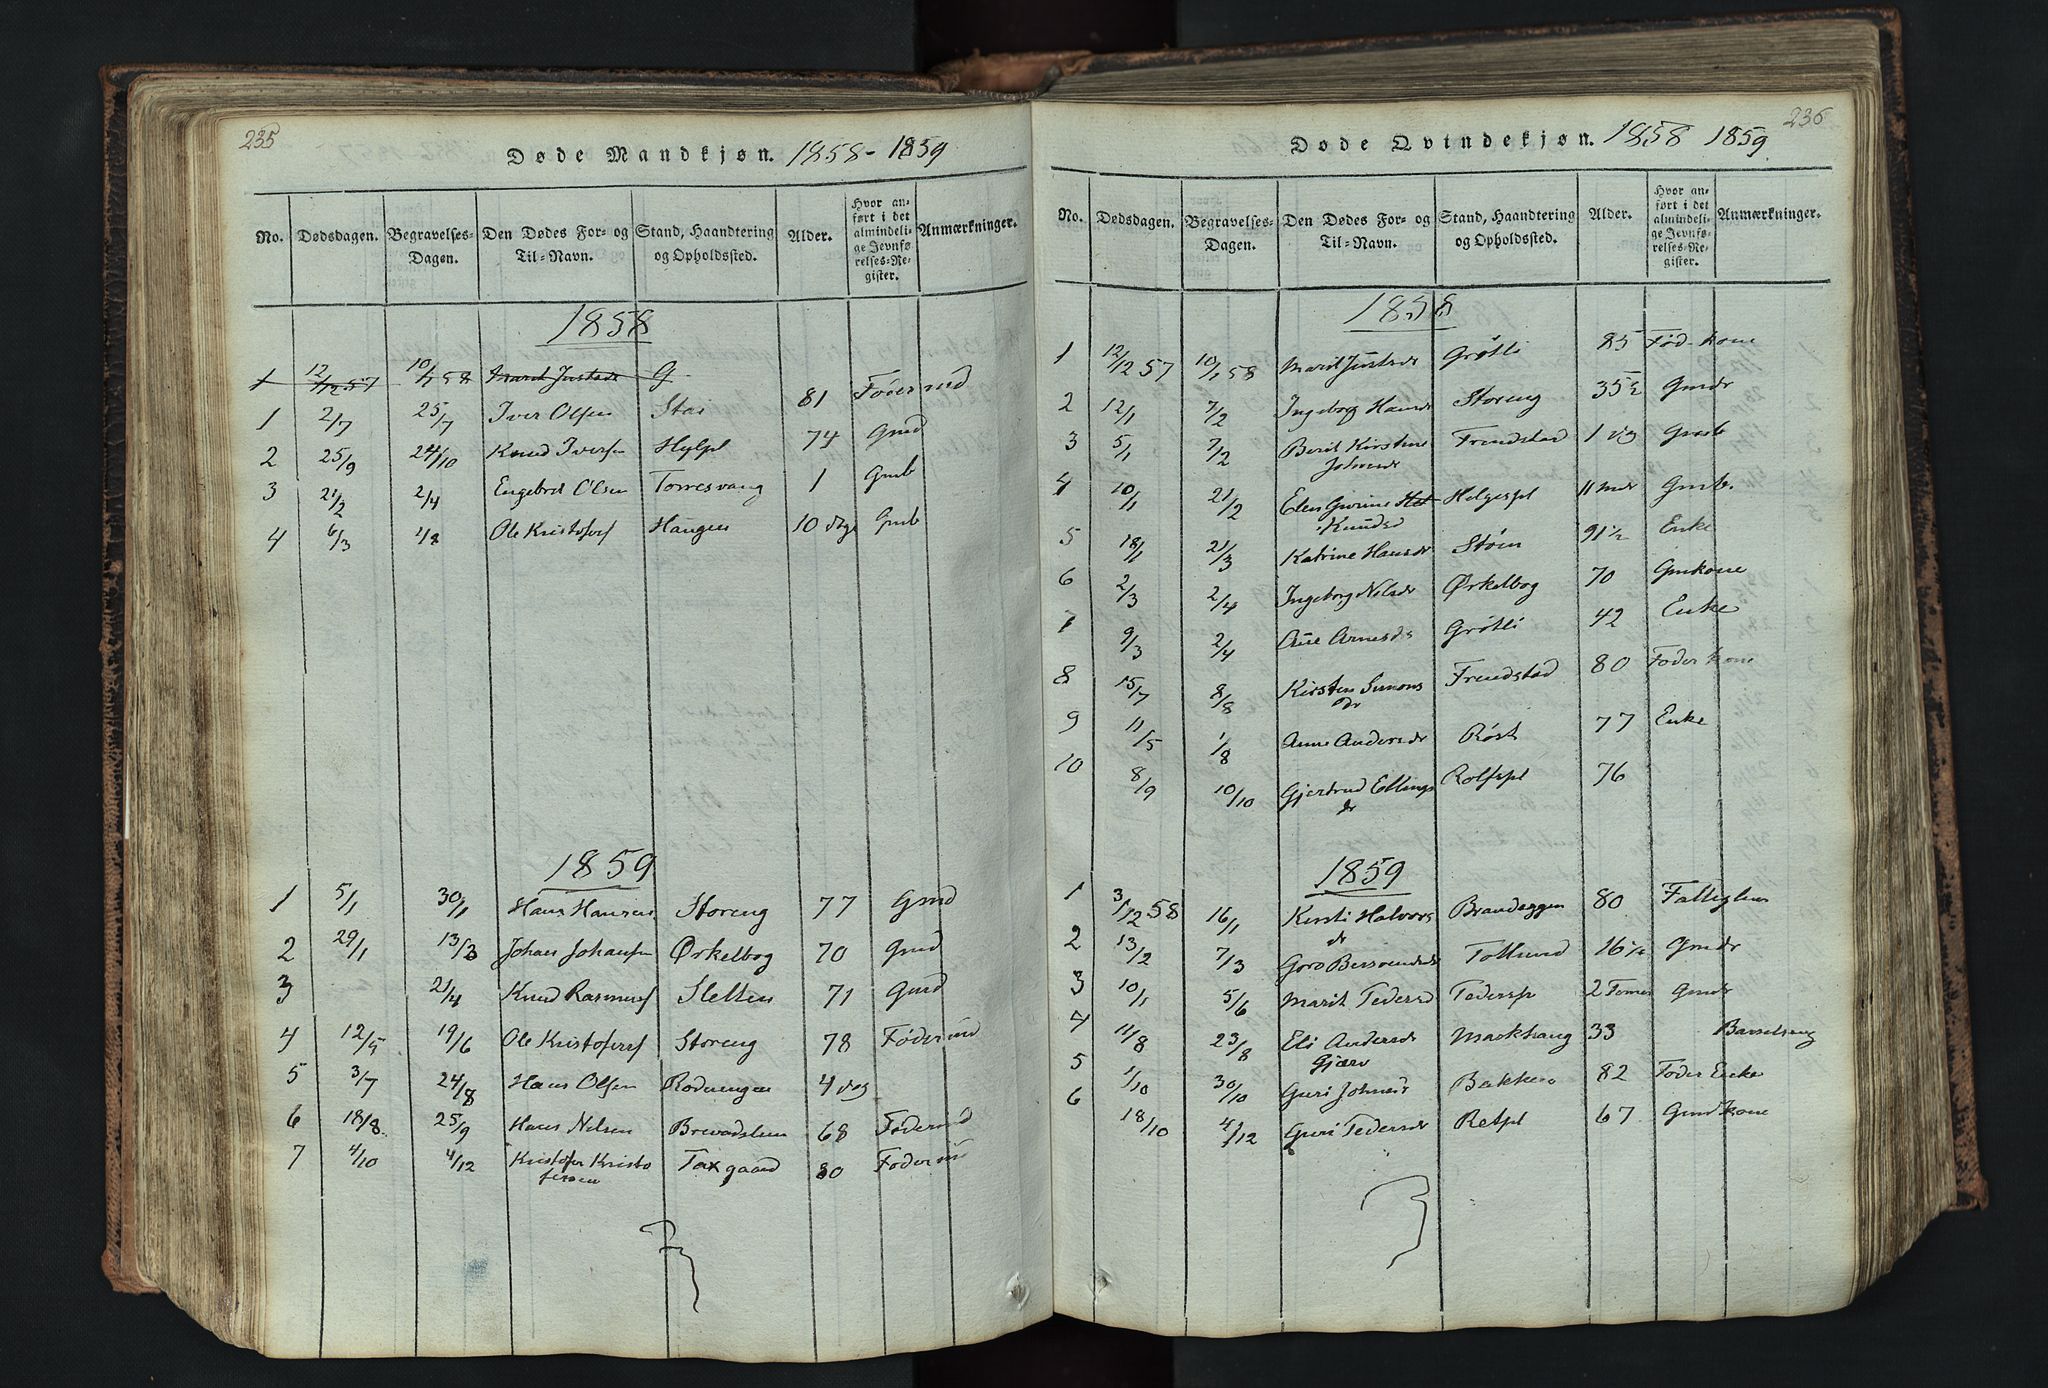 235
Døde Mandkjøn. 1858 - 1859
No. Dødsdagen. Begravelses-Dagen. Den Dødes For- og Til-Navn. Stand, Haandtering og Opholdssted. Alder. Hvor anført i det almindelige Jevnførelses-Register. Anmærkninger.
1858
1 12/12 57 10/1 58 Marit Justsdr G
1 2/7 25/7 Iver Olsen Stai 81 Føder md
2 25/9 24/10 Knud Iversen Hylpl 74 Gmd
3 21/2 2/4 Engebret Olsen Torresvang 1 Gmb
4 6/3 Ole Kristofers Haugen 10 dge Gmb
1859
1 5/1 30/1 Hans Hansen Storeng 77 Gmd
2 29/1 13/3 Johan Johansen Ørkelbog 70 Gmd
3 21/4 Knud Rasmus Sletten 71 Gmd
4 12/5 19/6 Ole Kristofers Storeng 78 Føder md
5 3/7 24/8 Hans Olsen Rodvengen 4 dg
6 18/8 25/9 Hans Nilsen 68 Føder md
7 4/10 4/12 Kristofer Kristo
fersen Taxgaard 80 Føder md
236
Døde Qvindekjøn. 1858 1859
No. Dødsdagen. Begravelses-Dagen. Den Dødes For- og Til-Navn. Stand, Haandtering og Opholdssted. Alder. Hvor anført i det almindelige Jevnførelses-Register. Anmærkninger.
1858
1 12/12 57 10/1 58 Marit Justsdr Grøtli 85 Fød-kone
2 12/1 7/2 Ingeborg Hansdr Storeng 35½ Gmdr
3 5/1 7/2 Berit Kirstine Frendstad 1
Johnsdr
4 10/1 21/2 Elen Gurine Helgespl 11 mdr Gmb.
Knudsd
5 18/1 21/3 Katrine Hansdr Støen 91½ Enke
6 2/3 2/4 Ingeborg Nilsdr Ørkelbog 70 Gmkone
7 9/3 2/4 Ane Arnesdr Grøtli 42 Enke
8 15/7 8/8 Kirsten Simons Frendstad 80 Føder kone
dr
9 11/5 1/8 Anne Andersdr Røst 77 Enke
10 8/9 10/10 Gjertrud Ellings Rolfspl 76
dr
1859
1 3/12 58 16/1 Kirsti Halvors Brandeggen 80 Fattiglem
dr
2 13/2 7/3 Goro Tollsrud 16½ Gmdr
3 10/1 5/6 Marit Pedersd Pederspl 2 Gmdr
4 11/8 23/8 Eli Andersdr 33 Barselseng
Gjærv
5 1/10 30/10 Guri Johnsdr Bakken 82 Føder Enke
6 18/10 4/12 Guri Pedersdr 67 Gmd kone